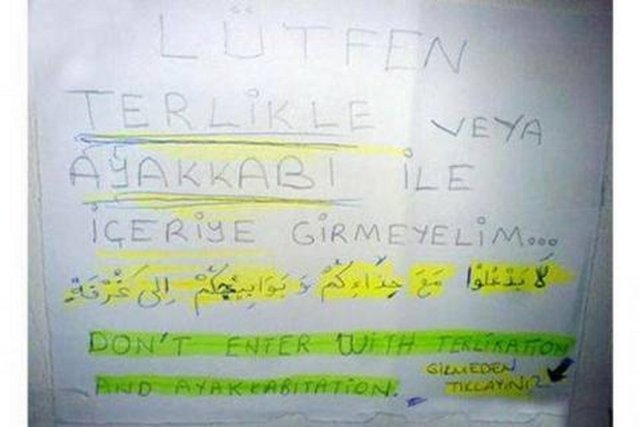 LÜTFEN
TERLİKLE VEYA
AYAKKABI İLE
İÇERİYE GİRMEYELİM...
لَا يَدْخُلُوْا مَعَ حِذَاءِكُمْ وَ بَوَابِيْجِكُمْ اِلىَ غُرْفَةِ
DON'T ENTER WITH TERLIKATION
AND AYAKKABITATION.
GİRMEDEN
TIKLAYINIZ